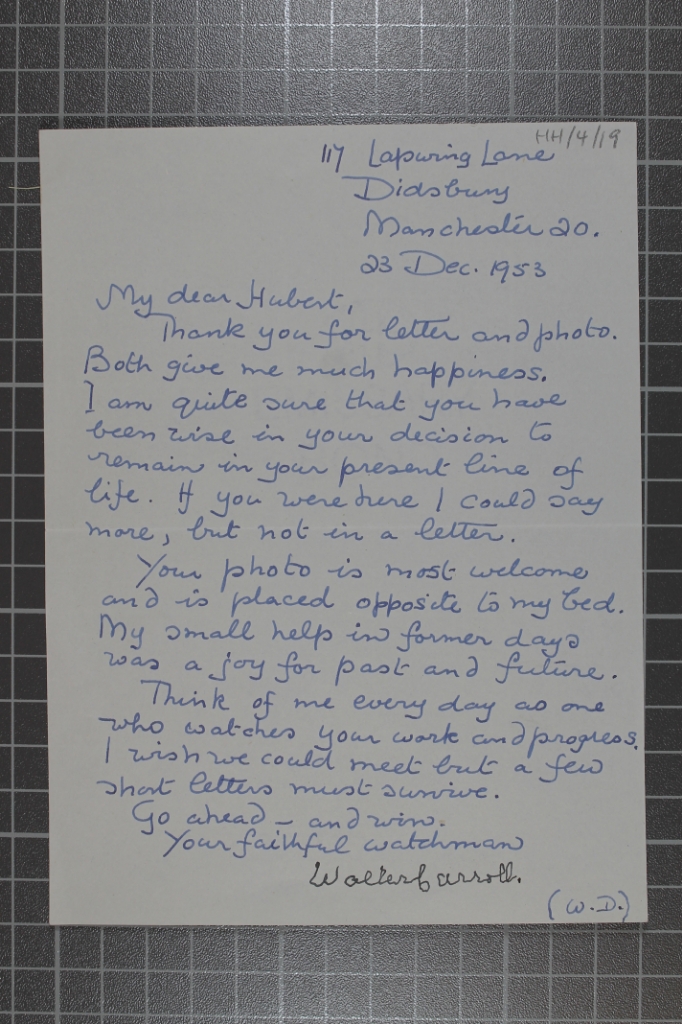 HH/4/19
117 Lapwing Lane
Didsbury
Manchester 20.
23 Dec. 1953
My dear Hubert,
Thank you for letter and photo.
Both give me much happiness.
I am quite sure that you have
been wise in your decision to
remain in your present line of
life. If you were here I could say
more, but not in a letter.
Your photo is most welcome
and is placed opposite to my bed.
My small help in former days
was a joy for past and future.
Think of me every day as one
who watches your work and progress.
I wish we could meet but a few
short letters must survive.
Go ahead – and win.
Your faithful watchman
Walter Carroll.
(W.D.)